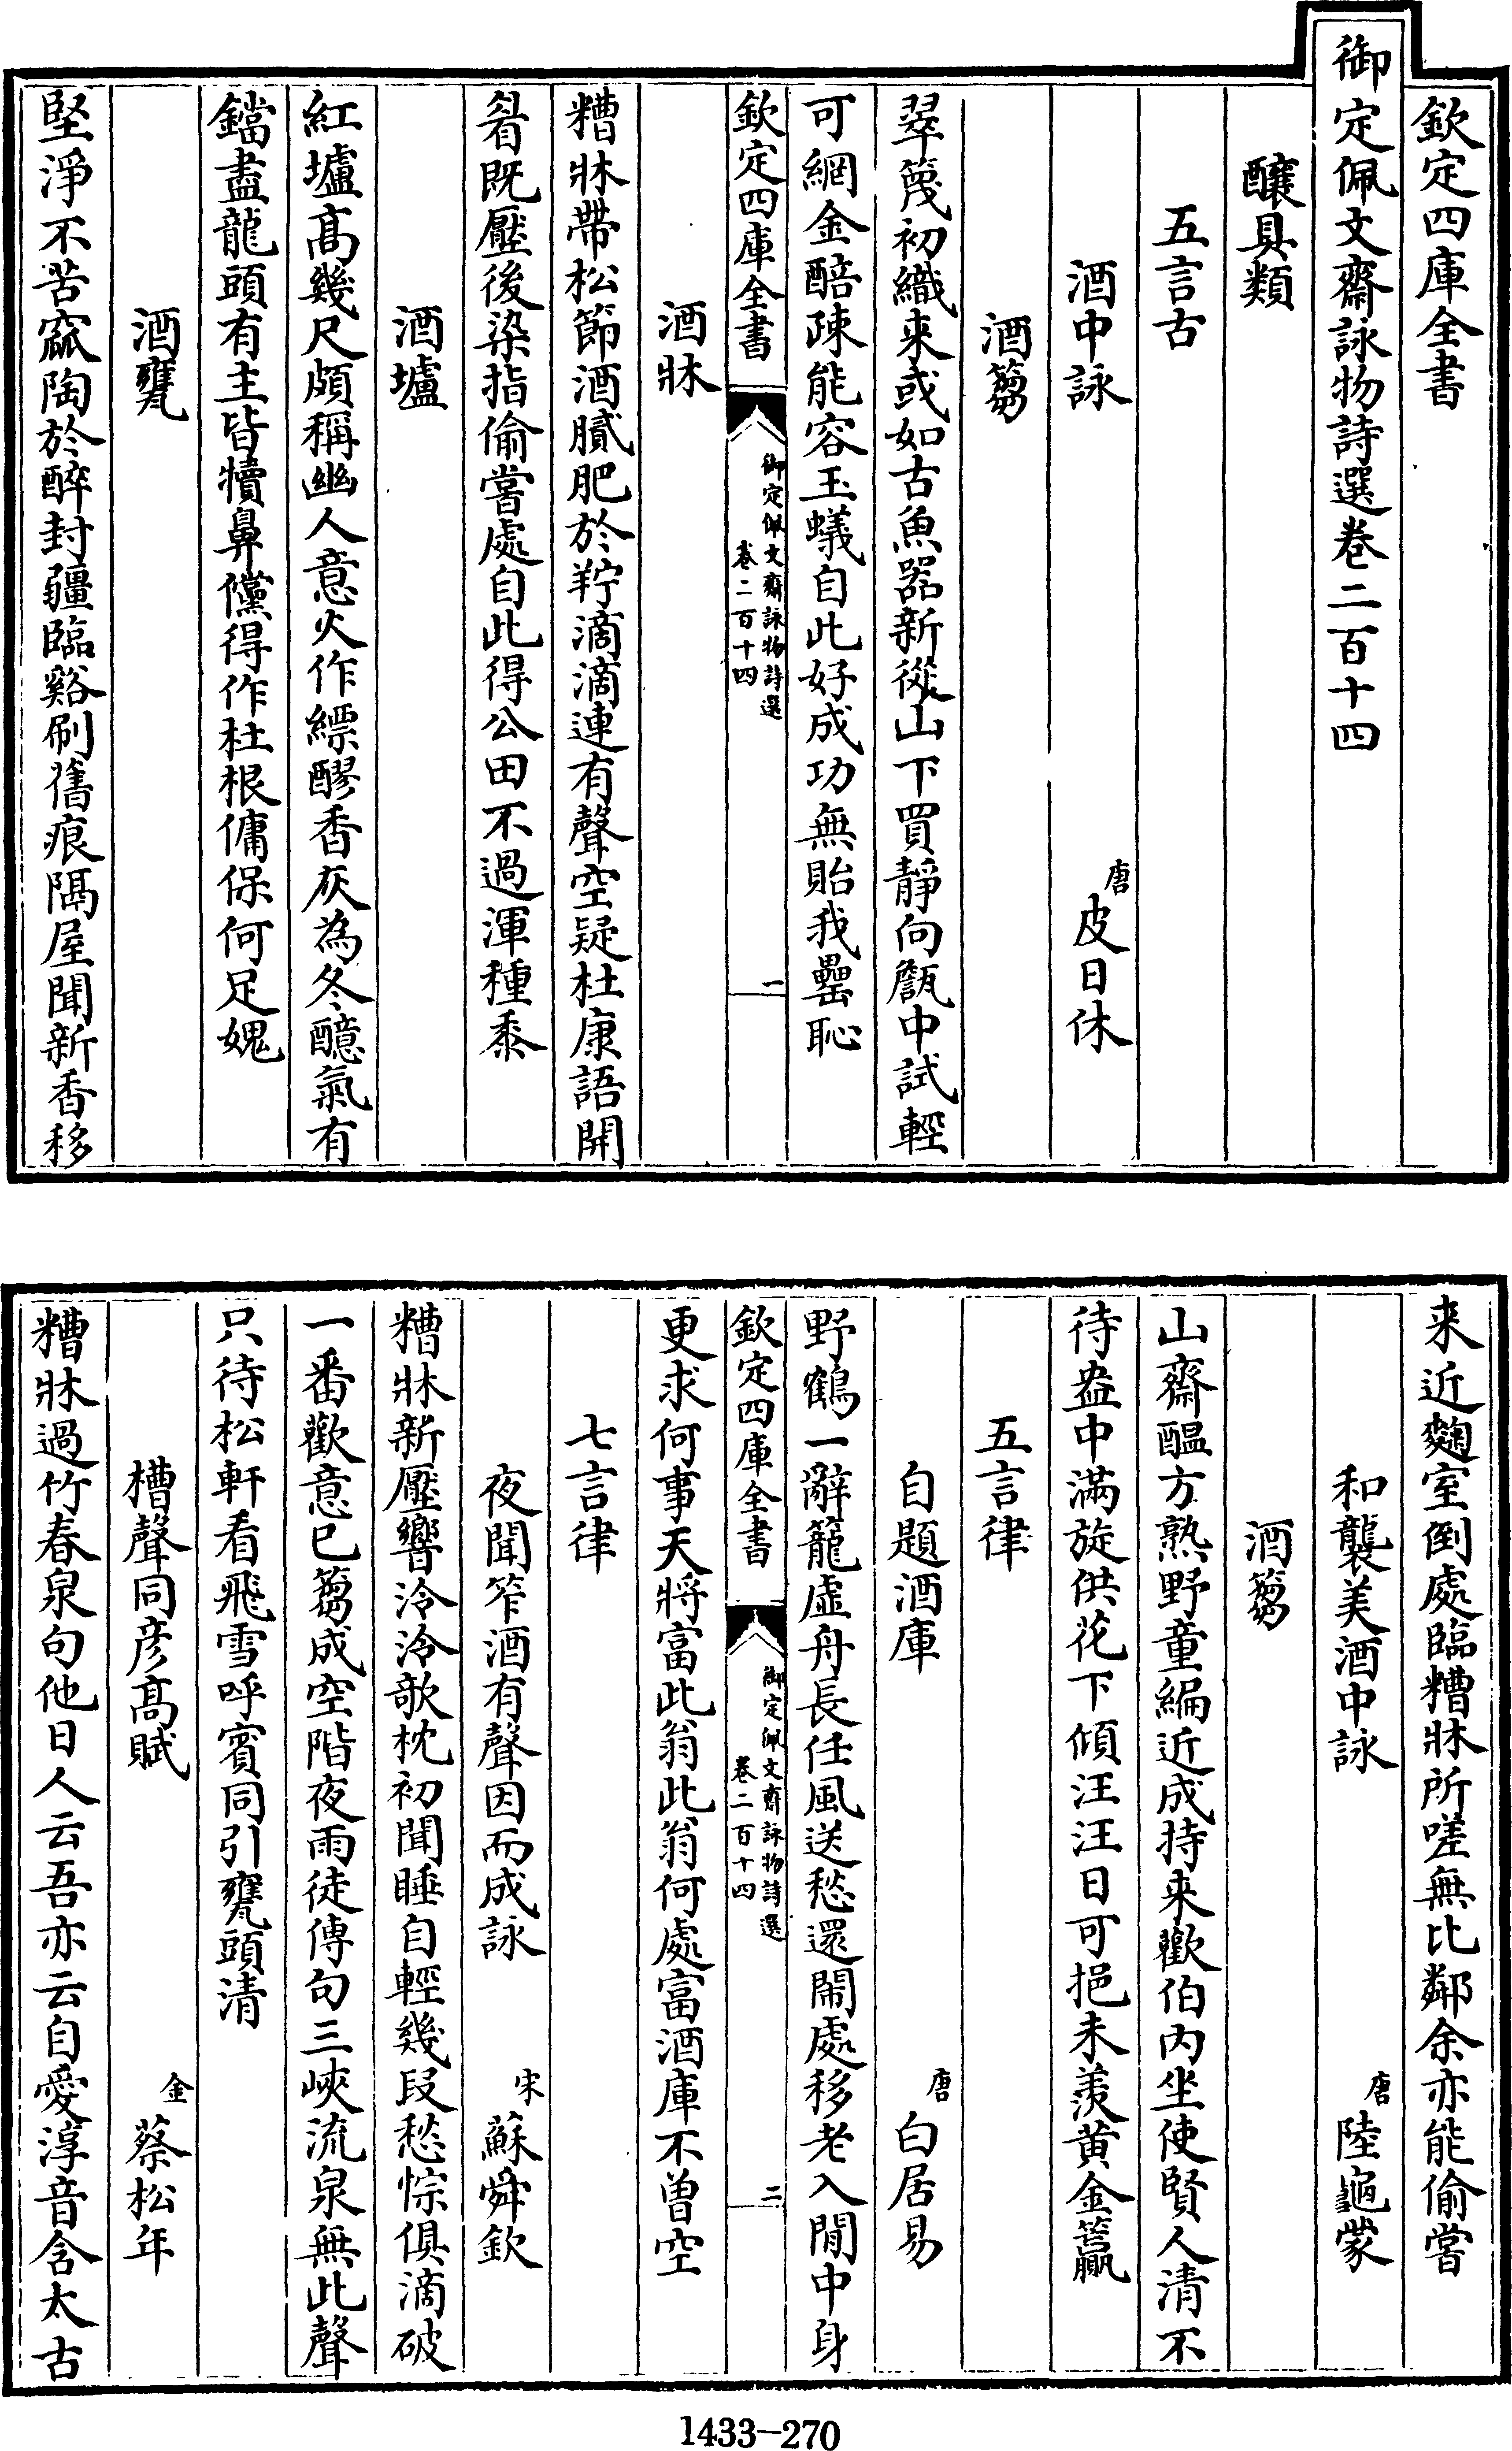 欽定四庫全書
御定佩文齋詠物詩選卷二百十四
釀具類
五言古
酒中詠
唐皮日休
酒篘
翠篾初織来或如古魚器新從山下買靜向甔中試輕
可網金醅疎能容玉蟻自此好成功無貽我罍恥
欽定四庫全書
御定佩文齋詠物詩選
卷二百十四
一
酒牀
糟牀帶松節酒膩肥於羜滴滴連有聲空疑杜康語開
眉既壓後染指偷嘗處自此得公田不過渾種黍
酒壚
紅壚髙幾尺頗稱幽人意火作縹醪香灰為冬醷氣有
鐺盡龍頭有主皆犢鼻儻得作杜根傭保何足媿
酒甕
堅淨不苦窳陶於醉封疆臨谿刷舊痕隔屋聞新香移
来近麴室倒處臨糟牀所嗟無比鄰余亦能偷嘗
和襲美酒中詠
唐陸龜蒙
酒篘
山齋醖方熟野童編近成持来歡伯内坐使賢人清不
待盎中滿旋供花下傾汪汪日可挹未羨黄金籯
五言律
自題酒庫
唐白居易
野鶴一辭籠虚舟長任風送愁還閙處移老入閒中身
欽定四庫全書
御定佩文齋詠物詩選
卷二百十四
二
更求何事天將富此翁此翁何處富酒庫不曽空
七言律
夜聞笮酒有聲因而成詠
宋蘇舜欽
糟牀新壓響泠泠欹枕初聞睡自輕幾段愁悰俱滴破
一番歡意已篘成空階夜雨徒傳句三峽流泉無此聲
只待松軒看飛雪呼賓同引甕頭清
槽聲同彦髙賦
金蔡松年
糟牀過竹春泉句他日人云吾亦云自愛淳音含太古
1433-270